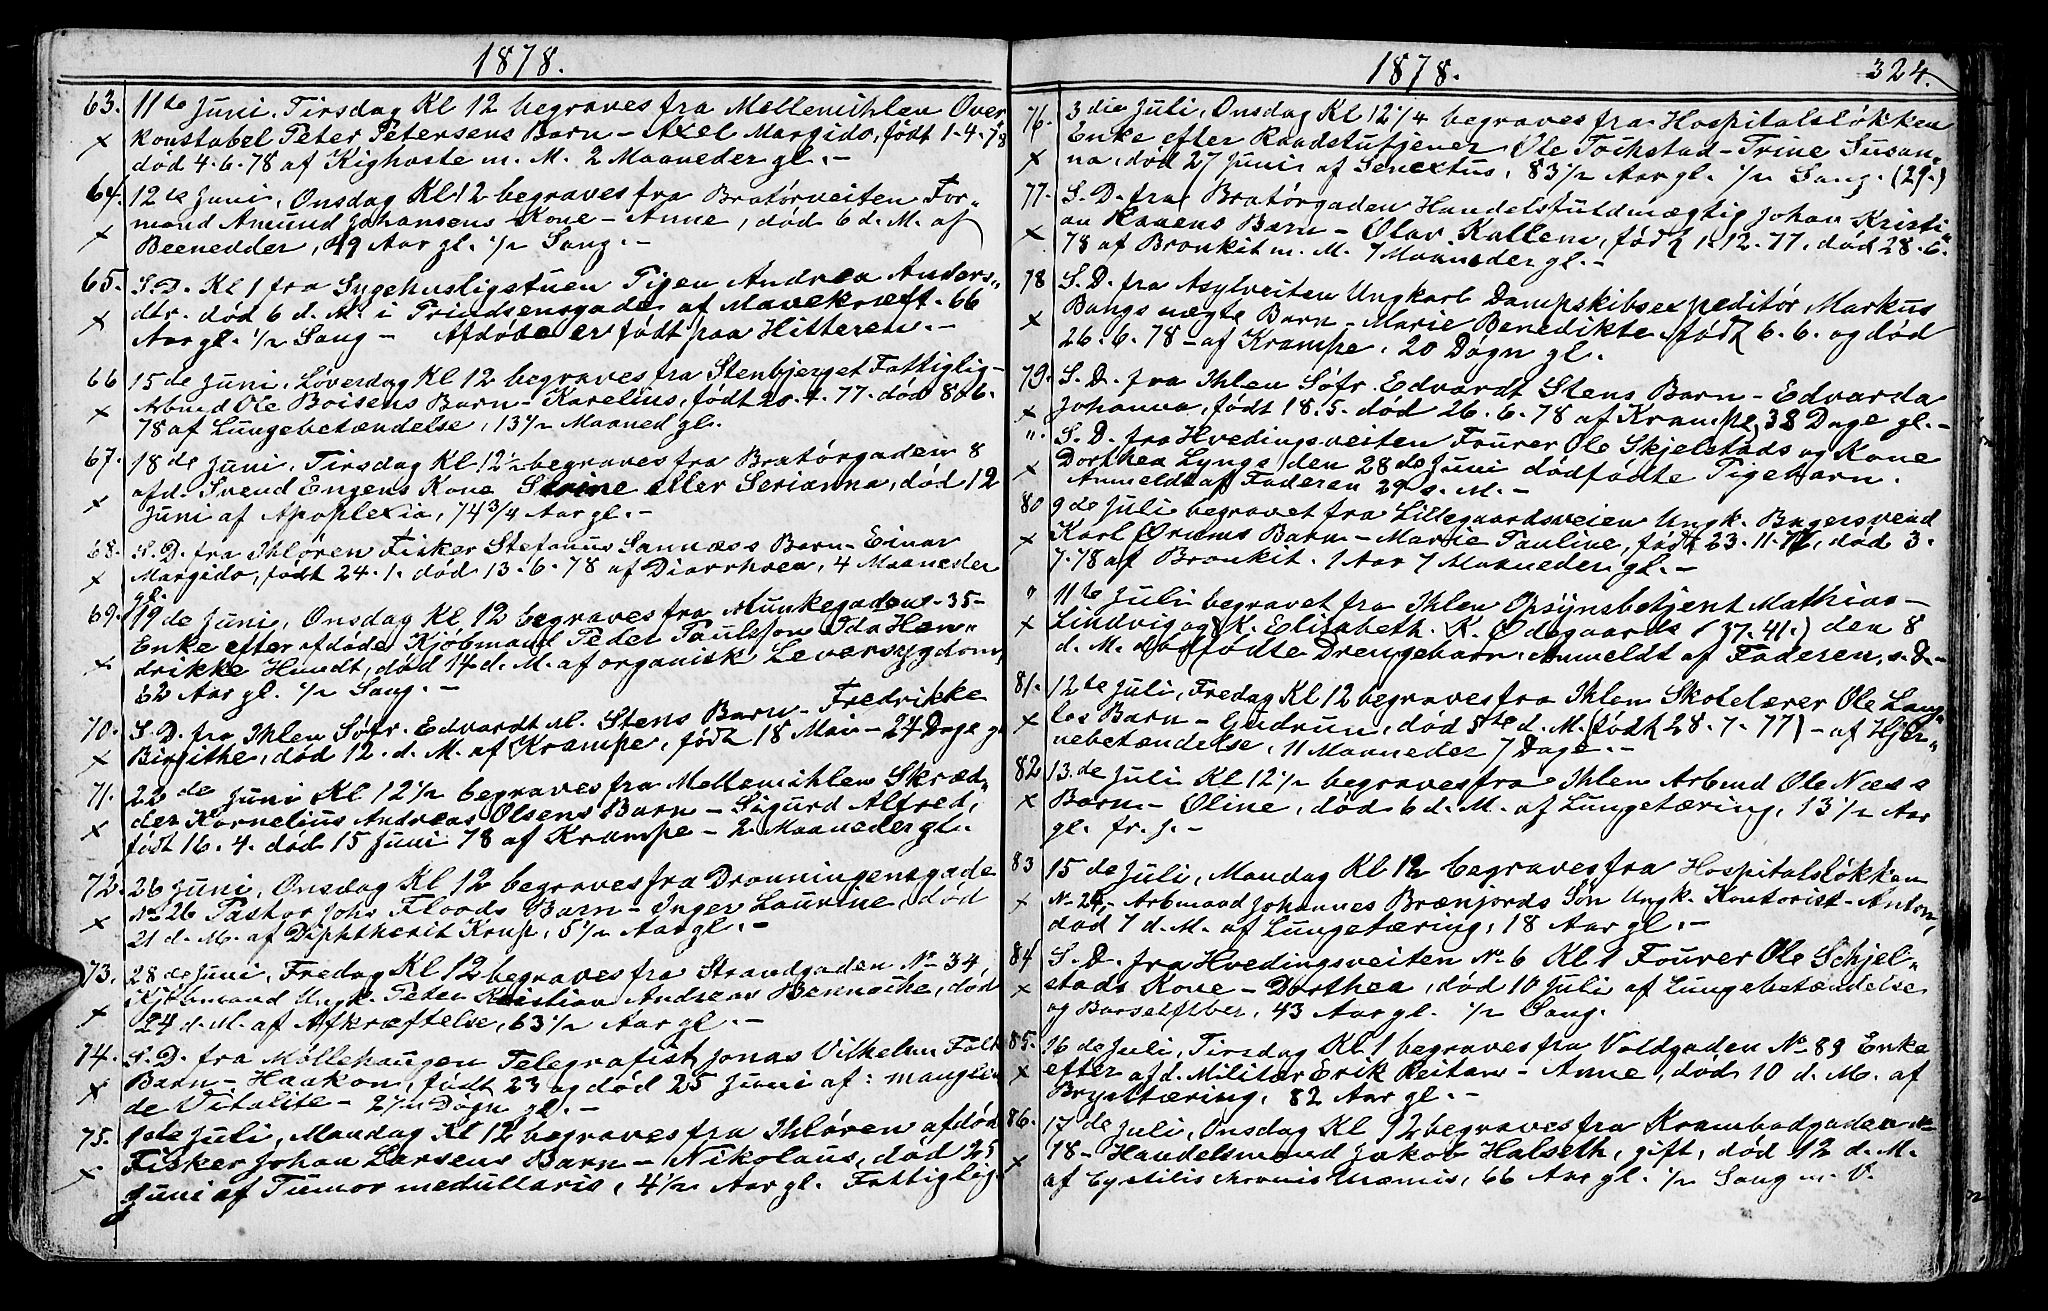 1878.
63. 11te Juni. Tirsdag Kl 12 begraves fra Mellemihlen Over
x konstabel Peter Petersens Barn – Axel Margido, født 1-4-78
død 4.6.78 af Kighoste m. M. 2 Maaneder gl. –
64. 12te Juni, Onsdag Kl 12 begraves fra Bratørveiten For„
x mand Amund Johansens Kone – Anne, død 6 d. M. af
Beenedder, 49 Aar gl. 1/2 Sang. –
65. S.D. Kl 1 fra Sygehusligstuen Pigen Andrea Anders„
x dtr. død 6 d. M. i Prindsensgade af Mavekræft. 66
Aar gl. 1/2 Sang – Afdøde er født paa Hitteren. –
66 15de Juni, Løverdag Kl 12 begraves fra Stenbjerget Fattiglig –
x Arbmd Ole Boisens Barn – Karelius, født 20.4.77. død 8.6.
78 af Lungebetændelse, 13 1/2 Maaned gl.
67. 18de Juni, Tirsdag Kl 12 1/2 begraves fra Bratørgaden 8
x afd. Svend Engens Kone Serine eller Serianna, død 12
Juni af Apoplexia, 74 3/4 Aar gl. –
68. S.D. fra Ihløren Fisker Stefanus Sannæss Barn – Einar
x Margido, født 24.1. død 13.6.78 af Diarrhoea, 4 Maaneder
gl.
69. 19de Juni, Onsdag Kl 12 begraves fra Munkegaden – 35 –
Enke efter afdøde Kjøbmand Peder Paulsson Ida Hen„
x drikke Hundt, død 14 d. M. af organisk Leversygdom,
62 Aar gl. 1/2 Sang. –
70. S.D. fra Ihlen Søfr. Edvardt M. Stens Barn – Fredrikke
x Birgithe, død 12. d. M. af Krampe, født 18 Mai – 24 Dage gl
71. 22de Juni Kl 12 1/2 begraves fra Mellemihlen Skræd„
x der Kornelius Andreas Olsens Barn – Sigurd Alfred,
født 16.4. død 15 Juni 78 af Krampe – 2 Maaneder gl.
72. 26 Juni, Onsdag Kl 12 begraves fra Dronningensgade
x No 26 Pastor Johs Floods Barn – Inger Laurine, død
21 d. M. af Diphtherit Krup, 5 1/2 Aar gl. –
73. 28de Juni, Fredag Kl 12 begraves fra Strandgaden No 34
x Kjøbmand Ungk. Peter Kristian Andreas Benneche, død
24 d. M. af Afkræftelse, 63 1/2 Aar gl. –
74. S.D. fra Møllehaugen Telegrafist Jonas Vilhelm Falk
x Barn – Haakon, født 23 og død 25 Juni af: manglen
de Vitalite – 2 1/2 Døgn gl. –
75. 1ste Juli, Mandag Kl 12 begraves fra Ihløren afdød
x Fisker Johan Larsens Barn – Nikolaus, død 25
Juni af Tumor medullaris, 4 1/2 Aar gl. Fattiglig.
1878. 324.
76. 3die Juli, Onsdag Kl 12 1/4 begraves fra Hospitalsløkken
Enke efter Raadstutjener Ole Tochstad – Trine Susan„
x na, død 27 Juni af Senectus, 83 1/2 Aar gl. 1/2 Sang. (29.)
77. S.D. fra Bratørgaden Handelsfuldmægtig Johan Kristi„
x an Haaens Barn – Olav Kallem, født 1.12.77. død 28.6.
78 af Bronkit m. M. 7 Maaneder gl. –
78 S.D. fra Asylveiten Ungkarl Dampskibsexpeditør Markus
x Bangs uægte Barn – Marie Benedikte, født 6.6. og død
26.6.78 – af Krampe, 20 Døgn gl.
79. S.D. fra Ihlen Søfr. Edvardt Stens Barn – Edvarda
x Johanna, født 18.5. død 26.6.78 af Krampe, 38 Dage gl. –
„. S.D. fra Hvedingsveiten Fourer Ole Skjelstads og Kone
x Dorthea Lyngs, den 28de Juni dødfødte Pigebarn.
Anmeldt af Faderen 29 s. M. –
80 9de Juli begravet fra Lillegaardsveien Ungk. Bagersvend
x Karl Ørens Barn – Marie Pauline, født 23.11.76, død 3.
7.78 af Bronkit. 1 Aar 7 Maaneder gl. –
„ 11te Juli begravet fra Ihlen Opsynsbetjent Mathias –
x Lindvig og K. Elisabeth. K. Ødegaards (37.41.) den 8
d. M. dødfødte Drengebarn. Anmeldt af Faderen, s. D. –
81. 12te Juli, Fredag Kl 12 begraves fra Ihlen Skolelærer Ole Lang„
x los Barn – Gudrun, død 8te d. M. (født 28.7.77) – af Hjer„
nebetændelse, 11 Maaneder 7 Dage. –
82 13.de Juli Kl 12 1/2 begraves fra Ihlen Arbmd Ole Næss
x Barn – Oline, død 6 d. M. af Lungetæring, 13 1/2 Aar
gl. fr. J. –
83 15de Juli, Mandag Kl 12 begraves fra Hospitalsløkken
x No 24, – Arbmand Johannes Brænjords Søn Ungk. Kontorist – Anton,
død 7 d. M. af Lungetæring, 18 Aar gl. –
84 S.D. fra Hvedingsveiten No 6 Kl 1 Fourer Ole Schjel„
x stads Kone – Dorthea, død 10 Juli af Lungebetændelse
og Barselfeber, 43 Aar gl. 1/2 Sang.
85. 16de Juli, Tirsdag Kl 1 begraves fra Voldgaden No 89 Enke
x efter afd. Militær Erik Reitan – Anne, død 10 d. M. af
Brysttæring, 82 Aar gl. –
86. 17de Juli, Onsdag Kl 12 begraves fra Krambodgaden No
x 18 – Handelsmand Jakob Halseth, gift, død 12 d. M.
af Cystitis chronis Uræmis, 66 Aar gl. 1/2 Sang m. V.